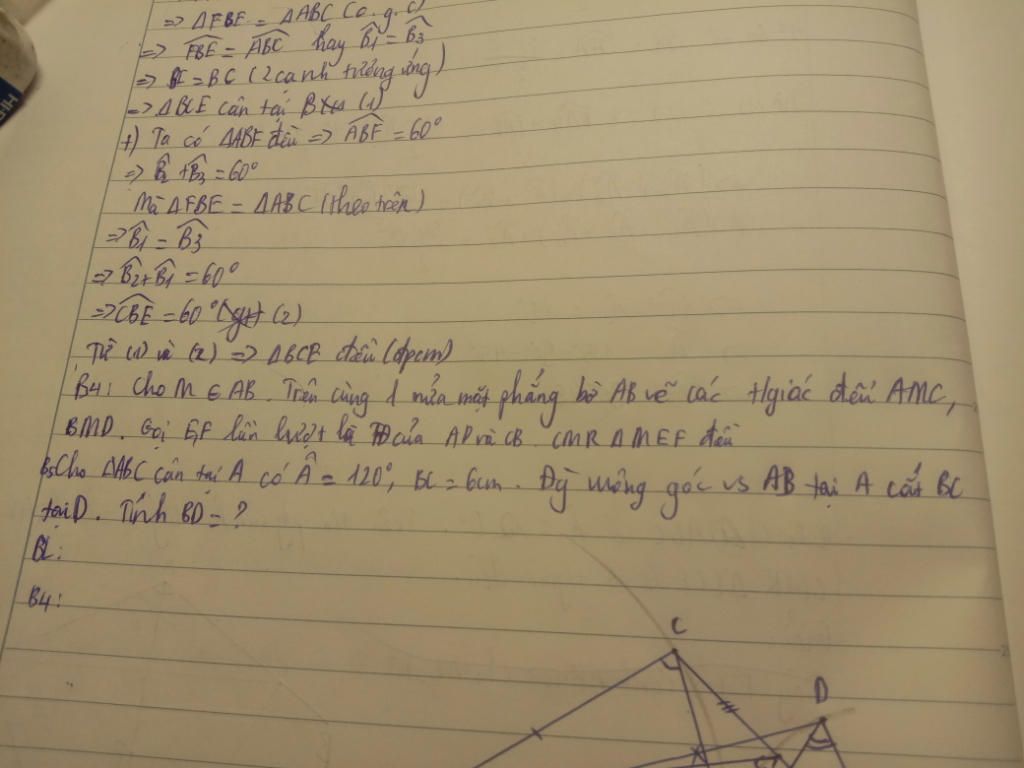 => ΔFBE = ΔABC (c.g.c)
=> \widehat{FBE} = \widehat{ABC} hay \widehat{B_1} = \widehat{B_3}
=> BE = BC (2 cạnh tương ứng)
=> ΔBCE cân tại B (1)
+) Ta có ΔABF đều => \widehat{ABF} = 60°
=> \widehat{B_2} + \widehat{B_3} = 60°
Mà ΔFBE = ΔABC (theo trên)
=> \widehat{B_1} = \widehat{B_3}
=> \widehat{B_2} + \widehat{B_1} = 60°
=> \widehat{CBE} = 60° (2)
Từ (1) và (2) => ΔBCE đều (đpcm)
B4: Cho M ∈ AB. Trên cùng 1 nửa mặt phẳng bờ AB vẽ các t/giác đều AMC,
BMD. Gọi E, F lần lượt là TĐ của AD và CB. CMR ΔMEF đều
B5 Cho ΔABC cân tại A có Â = 120°, BC = 6cm. Đg vuông góc vs AB tại A cắt BC
tại D. Tính BD = ?
BL:
B4:
C
D